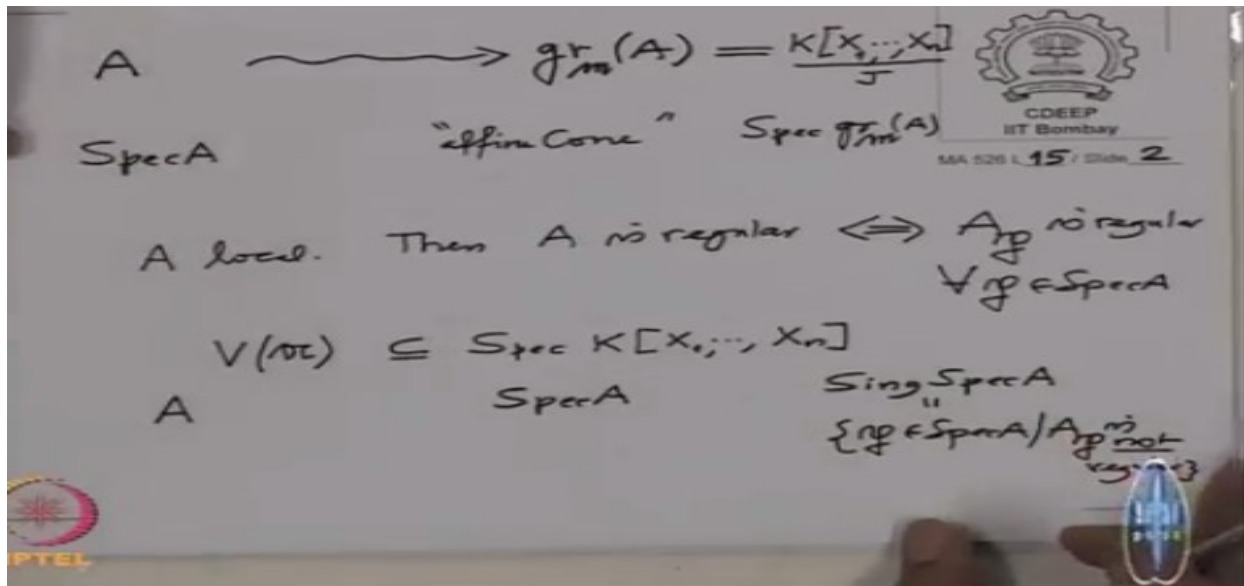 A ⟿ gr_𝔪(A) = K[X₁,…,Xₙ]/J
CDEEP
IIT Bombay
Spec A "affine Cone" Spec gr_𝔪(A)
MA 526 L 15 / Slide 2
A local. Then A is regular ⟺ A_𝔭 is regular
∀ 𝔭 ∈ Spec A
V(𝔞) ⊆ Spec K[X₁,…,Xₙ]
A Spec A Sing Spec A
"
{𝔭 ∈ Spec A / A_𝔭 is not
regular}
NPTEL